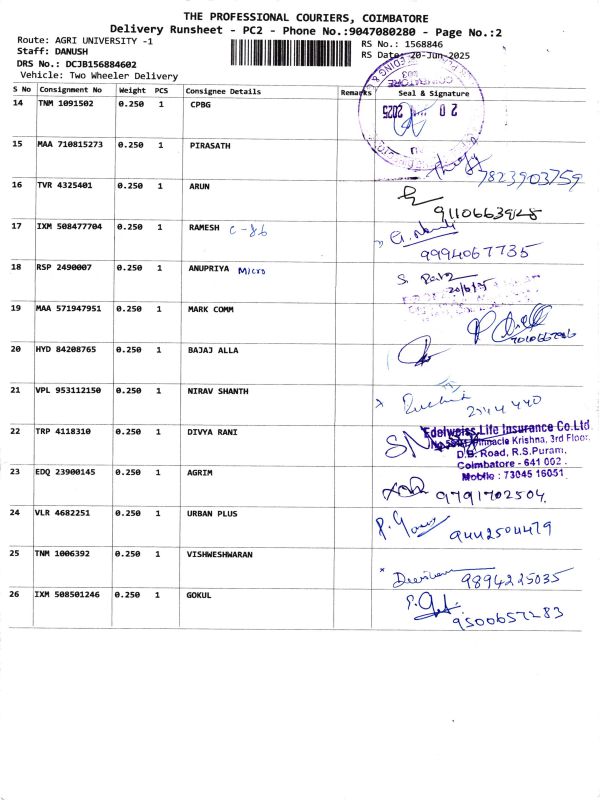 THE PROFESSIONAL COURIERS, COIMBATORE
Delivery Runsheet - PC2 - Phone No.:9047080280 - Page No.:2
Route: AGRI UNIVERSITY -1
RS No.: 1568846
Staff: DANUSH
RS Date: 20-Jun-2025
DRS No.: DCJB156884602
Vehicle: Two Wheeler Delivery
S No Consignment No Weight PCS Consignee Details Remarks Seal & Signature
14 TNM 1091502 0.250 1 CPBG
15 MAA 710815273 0.250 1 PIRASATH
7823903759
16 TVR 4325401 0.250 1 ARUN
17 IXM 508477704 0.250 1 RAMESH C-86
9994067735
18 RSP 2490007 0.250 1 ANUPRIYA Micro
20/6/25
19 MAA 571947951 0.250 1 MARK COMM
20 HYD 84208765 0.250 1 BAJAJ ALLA
21 VPL 953112150 0.250 1 NIRAV SHANTH
2544440
22 TRP 4118310 0.250 1 DIVYA RANI
Edelweiss Life Insurance Co.Ltd
Pinnacle Krishna, 3rd Floor,
D.B. Road, R.S.Puram,
Coimbatore - 641 002.
Mobile : 73045 16051
23 EDQ 23900145 0.250 1 AGRIM
9791702504
24 VLR 4682251 0.250 1 URBAN PLUS
9442504479
25 TNM 1006392 0.250 1 VISHWESHWARAN
9894225035
26 IXM 508501246 0.250 1 GOKUL
9500657283